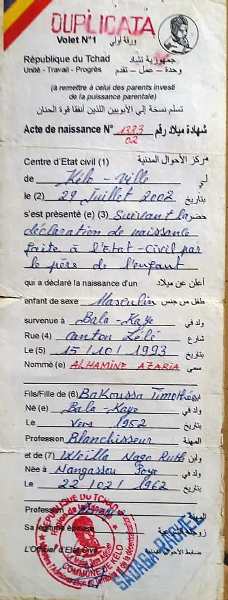 DUPLICATA
Volet N°1 ورقة أولى
République du Tchad جمهورية تشاد
Unité - Travail - Progrès وحدة - عمل - تقدم
(à remettre à celui des parents investi
de la puissance parentale)
تسلم نسخة إلى الأبوين اللذين أنفقا قوة الحنان
Acte de naissance N° 1333 شهادة ميلاد رقم
02
Centre d'Etat civil (1) مركز الأحوال المدنية
de Kélo - Ville في
le (2) 29 Juillet 2002 بتاريخ
s'est présenté (e) (3) Suivant la حضر
déclaration de naissance
faite à l'Etat-Civil par
le père de l'enfant
qui a déclaré la naissance d'un أعلن عن ميلاد
enfant de sexe Masculin طفل من جنس
survenue à Bala-Kaye ولد في
Rue (4) Canton Lélé شارع
Le (5) 15/10/1993 بتاريخ
Nommé (e) ALHAMINE AZARIA سمي
Fils/Fille de (6) Bakoussa Timothée
Né (e) Bala-Kaye ولد في
Le Vers 1952 بتاريخ
Profession Blanchisseur المهنة
et de (7) Weilla Naga Ruth وابن
Née à Nangassou Poye ولد في
Le 22/02/1962 بتاريخ
Profession المهنة
Sa légitime épouse
L'Officier d'Etat Civil ضابط الأحوال المدنية
REPUBLIQUE DU TCHAD
COMMUNE DE KELO